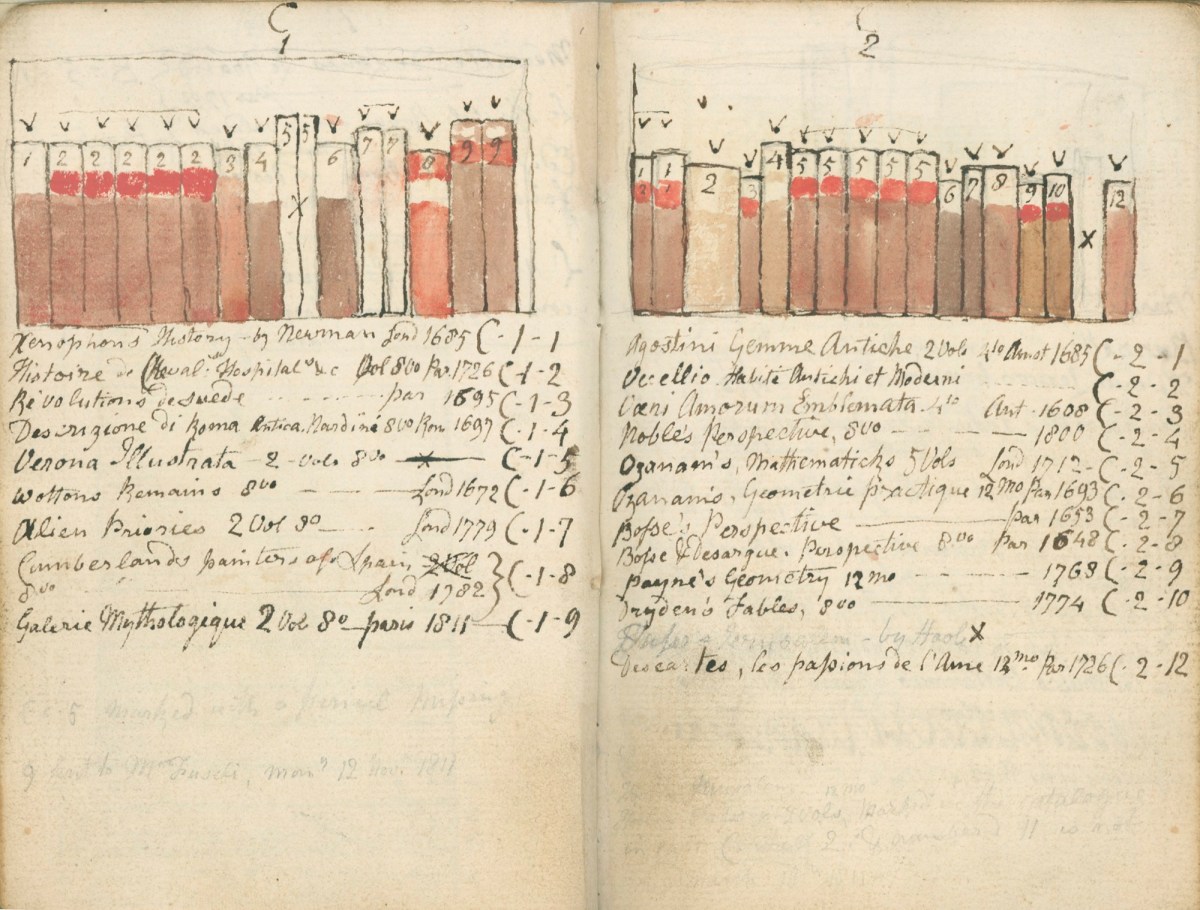 C
1
1 2 2 2 2 2 3 4 5 5 6 7 7 8 9 9
x
Xenophons History - by Newman Lond 1685 C - 1 - 1
Histoire de Cheval. Hospital &c Vol 8vo Par. 1726 C - 1 - 2
Révolutions de suede - - - - par 1695 C - 1 - 3
Descrizione di Roma Antica. Nardini 8vo Rom 1697 C - 1 - 4
Verona Illustrata - 2 - Vols 8vo x C - 1 - 5
Wottons Remains 8vo - - - Lond 1672 C - 1 - 6
Alien Priories 2 Vol 8o - - - Lond 1779 C - 1 - 7
Cumberlands painters of Spain 2 Vol
8vo - - - Lond 1782 } C - 1 - 8
Galerie Mythologique 2 Vol 8o - paris 1811 - C - 1 - 9
C - 5 Marked with a pencil
9 Sent to Mr Fuseli, 12 Nov. 1817
C
2
1 1 2 3 4 5 5 5 5 5 6 7 8 9 10 12
x
Agostini Gemme Antiche 2 Vols 4to Amst 1685 C - 2 - 1
Vecellio. Habiti Antichi et Moderni C - 2 - 2
Væni Amorum Emblemata. 4to Ant. 1608 C - 2 - 3
Noble's Perspective, 8vo - - - 1800 C - 2 - 4
Ozanam's, Mathematicks 5 Vols Lond 1712 - C - 2 - 5
Ozanam's, Geometrie practique 12mo Par 1693 C - 2 - 6
Bosse's Perspective - par 1653 C - 2 - 7
Bosse & Desargue. Perspective 8vo Par 1648 C - 2 - 8
Payne's Geometry 12mo - - - 1768 C - 2 - 9
Dryden's Fables, 8vo - 1774 C - 2 - 10
x
Descartes, les passions de l'Ame 12mo Par 1726 C - 2 - 12